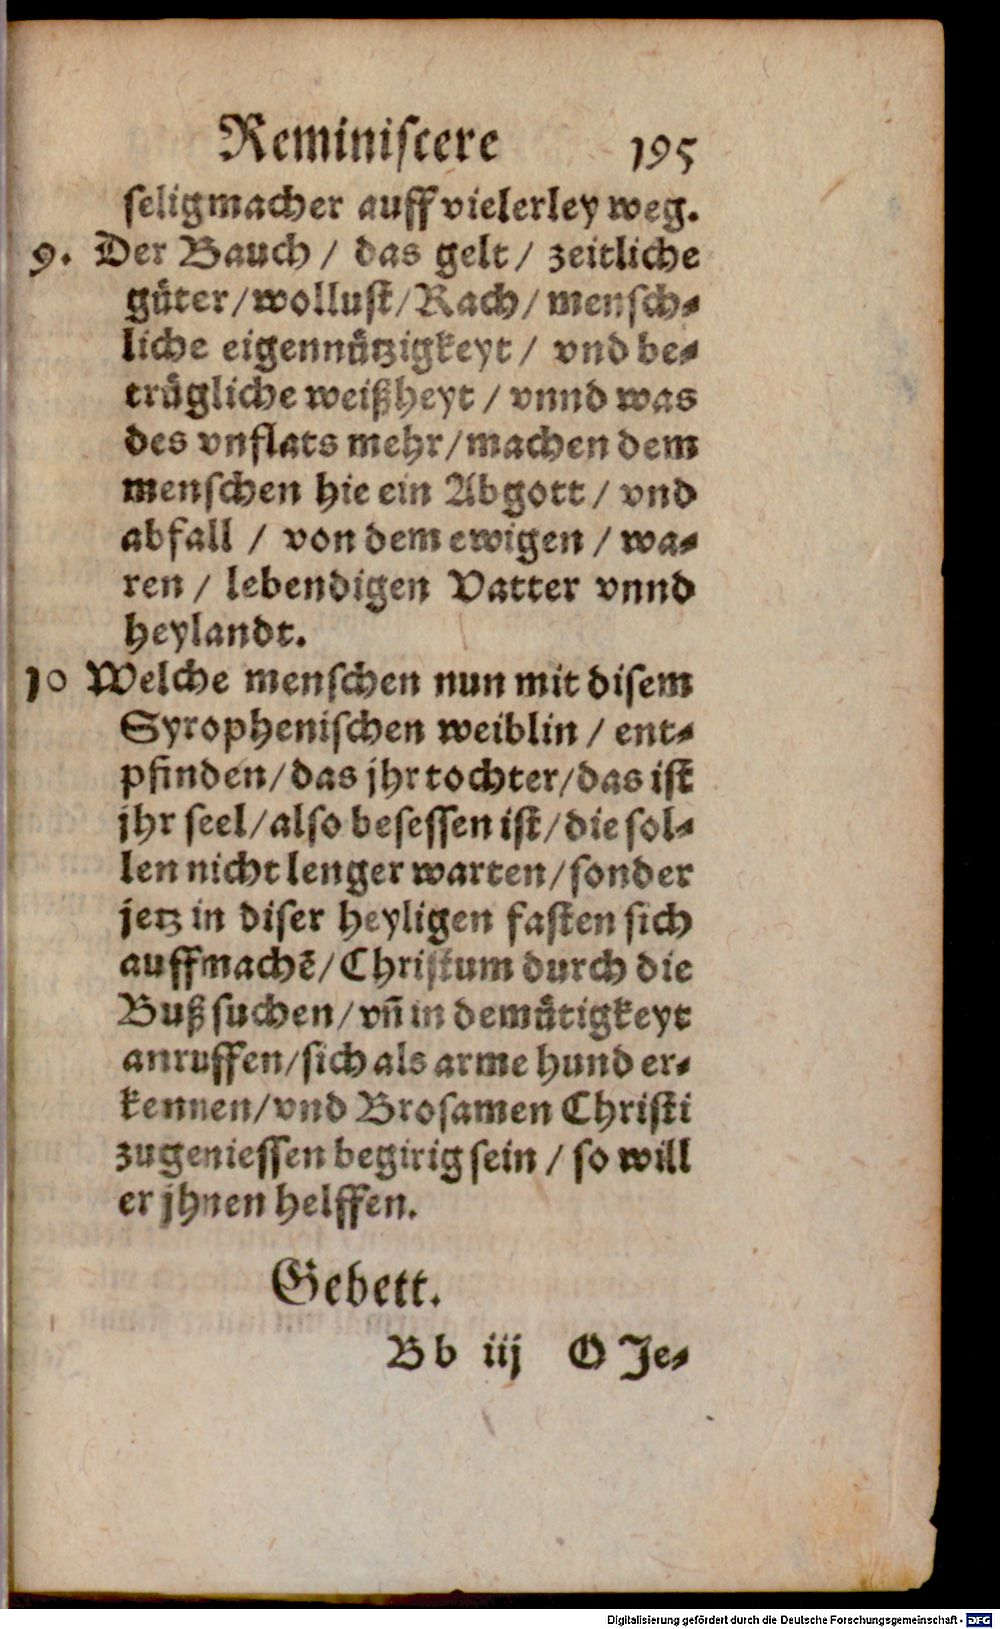 Reminiſcere 195
ſeligmacher auff vielerley weg.
9. Der Bauch / das gelt / zeitliche
guͤter / wolluſt / Rach / menſch⸗
liche eigennuͤtzigkeyt / vnd be⸗
truͤgliche weißheyt / vnnd was
des vnflats mehr / machen dem
menſchen hie ein Abgott / vnd
abfall / von dem ewigen / wa⸗
ren / lebendigen Vatter vnnd
heylandt.
10 Welche menſchen nun mit diſem
Syropheniſchen weiblin / ent⸗
pfinden / das jhr tochter / das iſt
jhr ſeel / alſo beſeſſen iſt / die ſol⸗
len nicht lenger warten / ſonder
jetz in diſer heyligen faſten ſich
auffmachē / Chriſtum durch die
Buß ſuchen / vn̄ in demuͤtigkeyt
anruffen / ſich als arme hund er⸗
kennen / vnd Broſamen Chriſti
zugenieſſen begirig ſein / ſo will
er jhnen helffen.
Gebett.
Bb iij O Je⸗
Digitalisierung gefördert durch die Deutsche Forschungsgemeinschaft - DFG